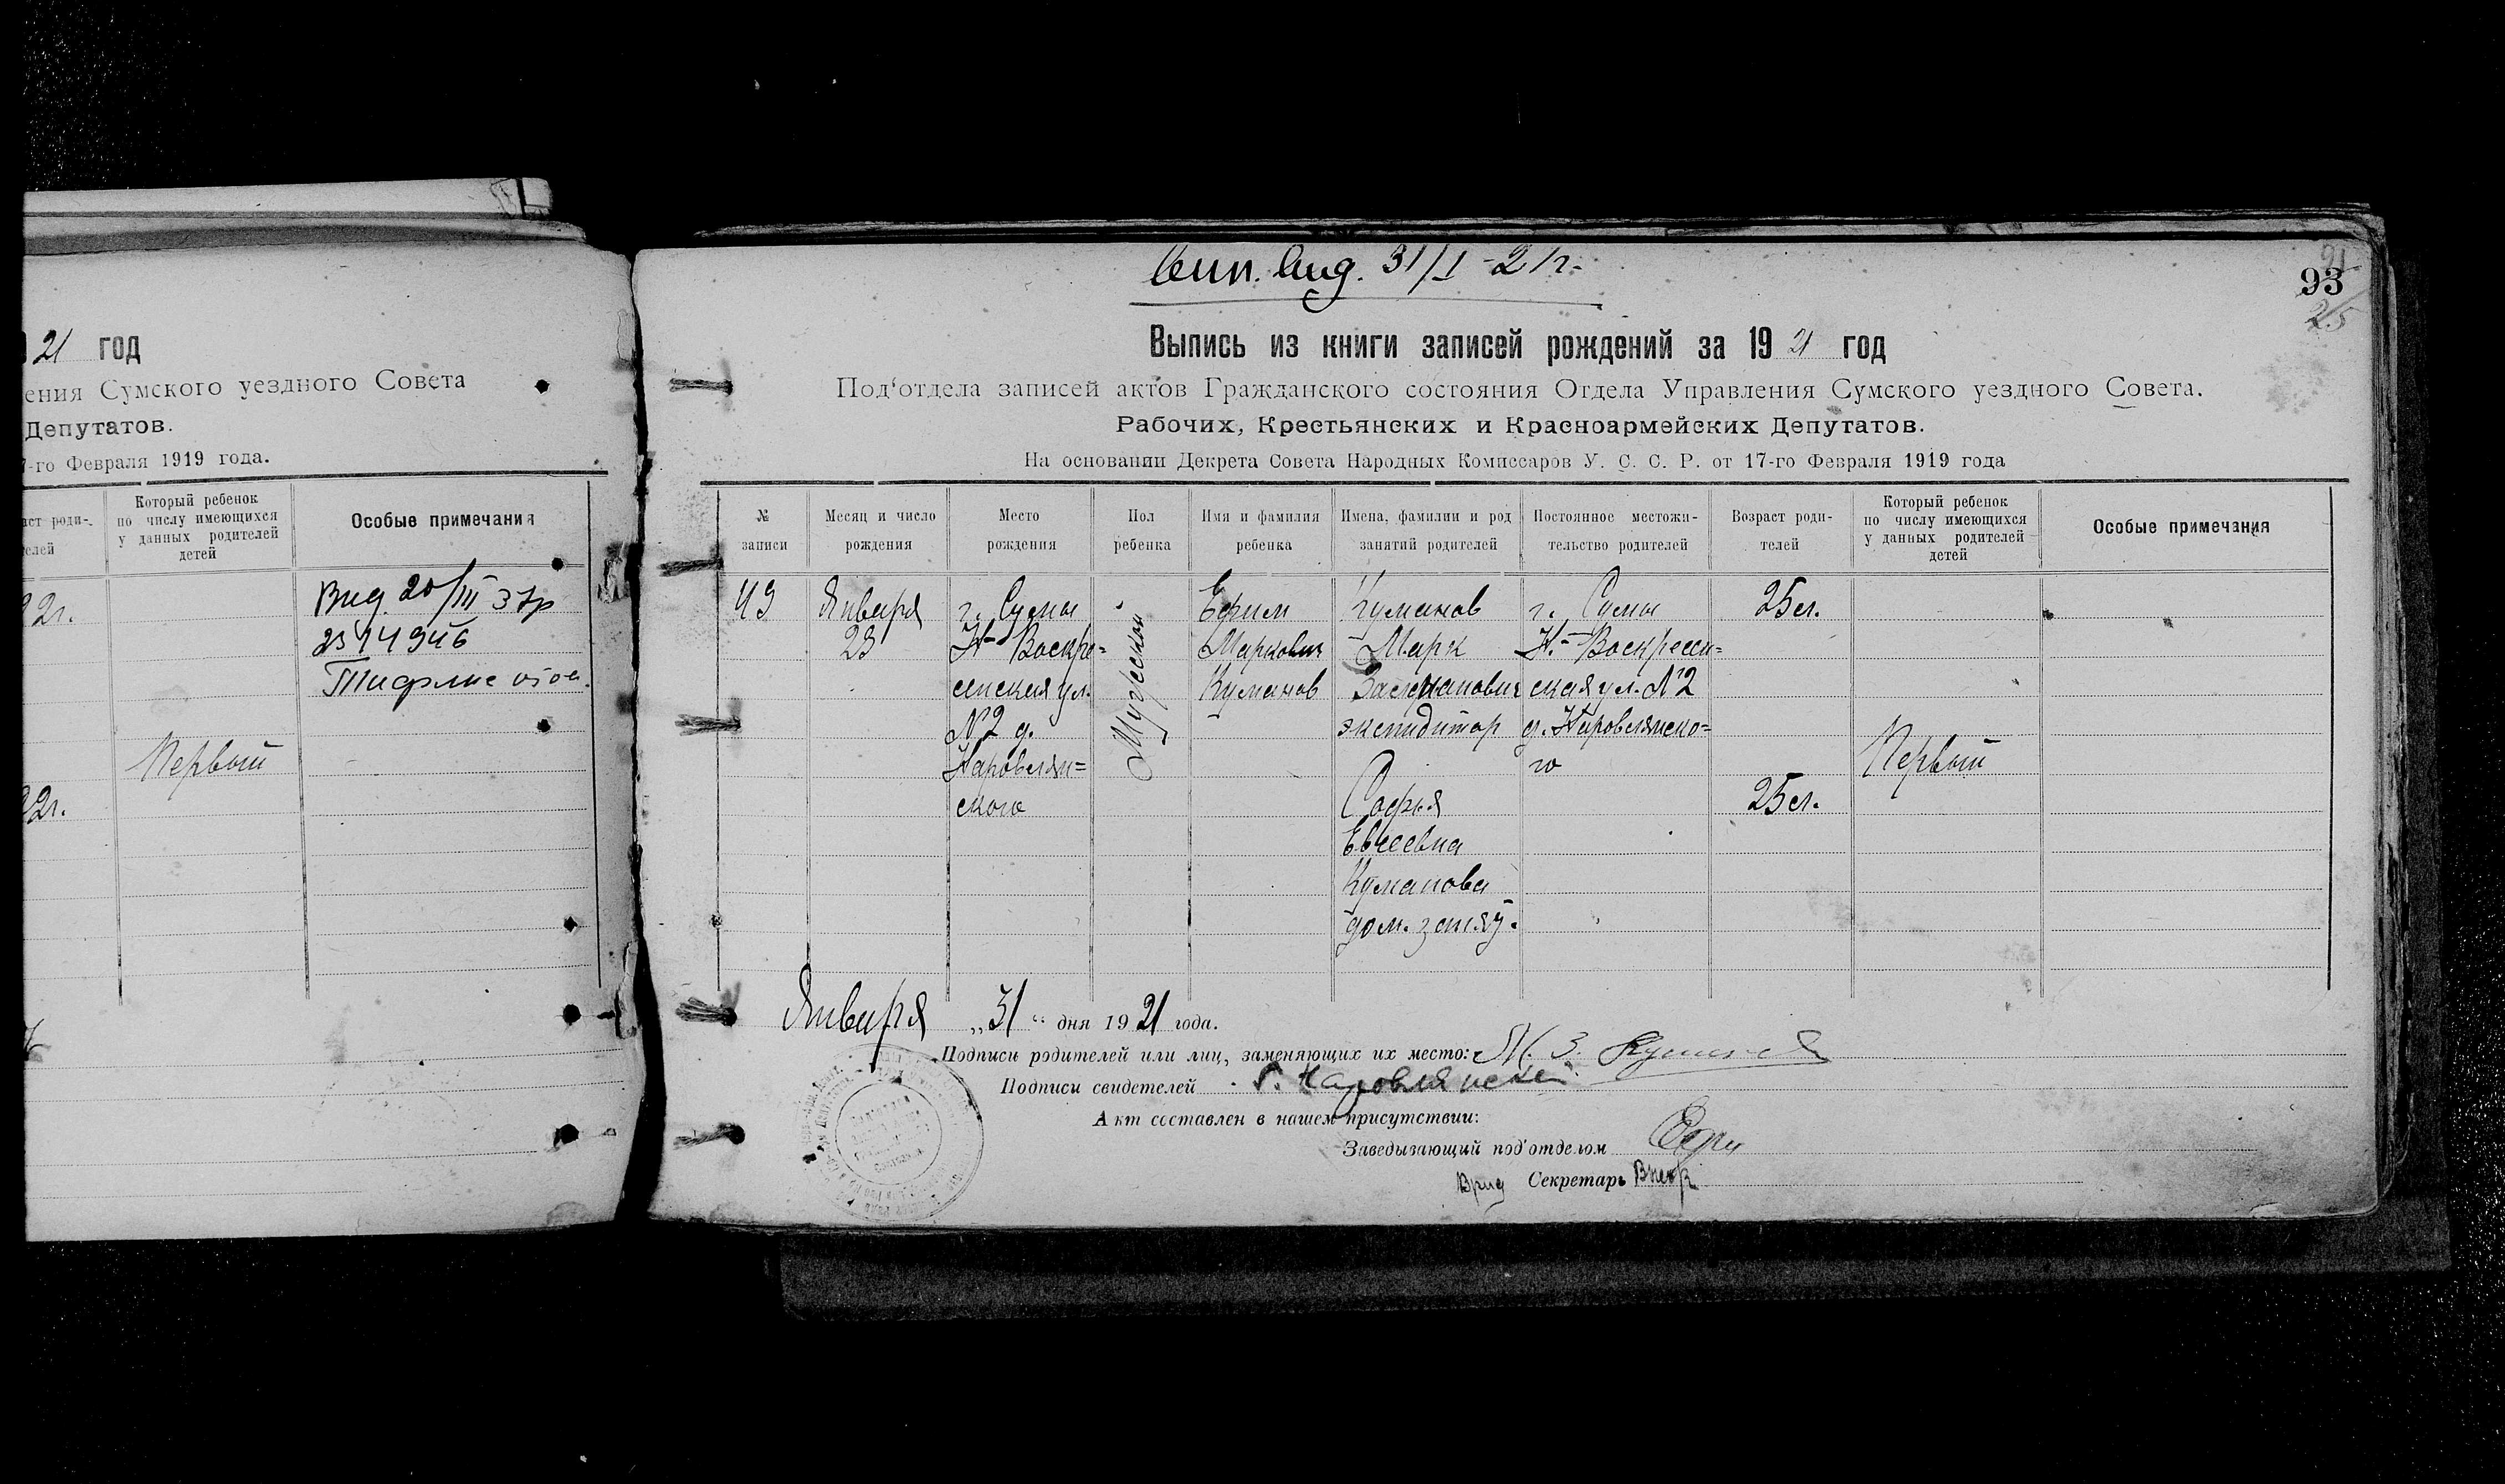 21 год
ения Сумского уездного Совета
Депутатов.
7-го Февраля 1919 года.
аст роди-
телей
Который ребенок
по числу имеющихся
у данных родителей
детей
Особые примечания
22г.
Первый
22г.
Вид. 20/III 37р
2314946
Тифлис
31/I-21г.
93
25
Выпись из книги записей рождений за 1921 год
Под'отдела записей актов Гражданского состояния Отдела Управления Сумского уездного Совета.
Рабочих, Крестьянских и Красноармейских Депутатов.
На основании Декрета Совета Народных Комиссаров У. С. С. Р. от 17-го Февраля 1919 года
№
записи
Месяц и число
рождения
Место
рождения
Пол
ребенка
Имя и фамилия
ребенка
Имена, фамилии и род
занятий родителей
Постоянное местожи-
тельство родителей
Возраст роди-
телей
Который ребенок
по числу имеющихся
у данных родителей
детей
Особые примечания
43
Января
23
г. Сумы
Н- Воскре=
сенская ул.
№2 д.
Наровлян=
ского
Мужской
Ефим
Маркович
Куманов
Куманов
Марк
Залманович
экспедитор
Софья
Евсеевна
Куманова
дом. хозяй.
г. Сумы
Н.- Воскресен=
ская ул. №2
д. Наровлянско=
го
25 л.
25 л.
Первый
Января „31“ дня 1921 года.
Подписи родителей или лиц, заменяющих их место: М. З. Куманов
Подписи свидетелей Наровлянский
Акт составлен в нашем присутствии:
Заведывающий под'отделом
Врид Секретарь